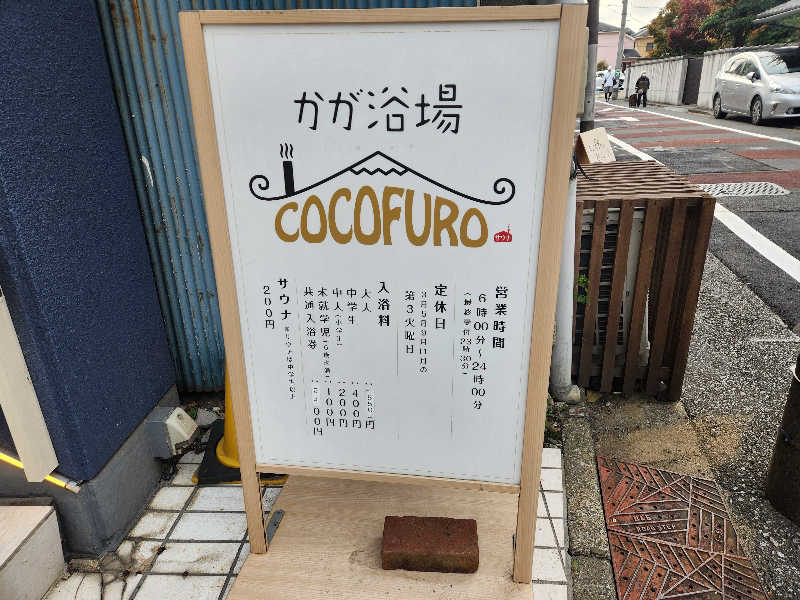 かが浴場
COCOFURO
サウナ
営業時間
6時00分〜24時00分
(最終受付23時30分)
定休日
第3火曜日
入浴料
大人
中学生 :400円
中人(小学生) :200円
未就学児 :100円
共通入浴券
サウナ
200円